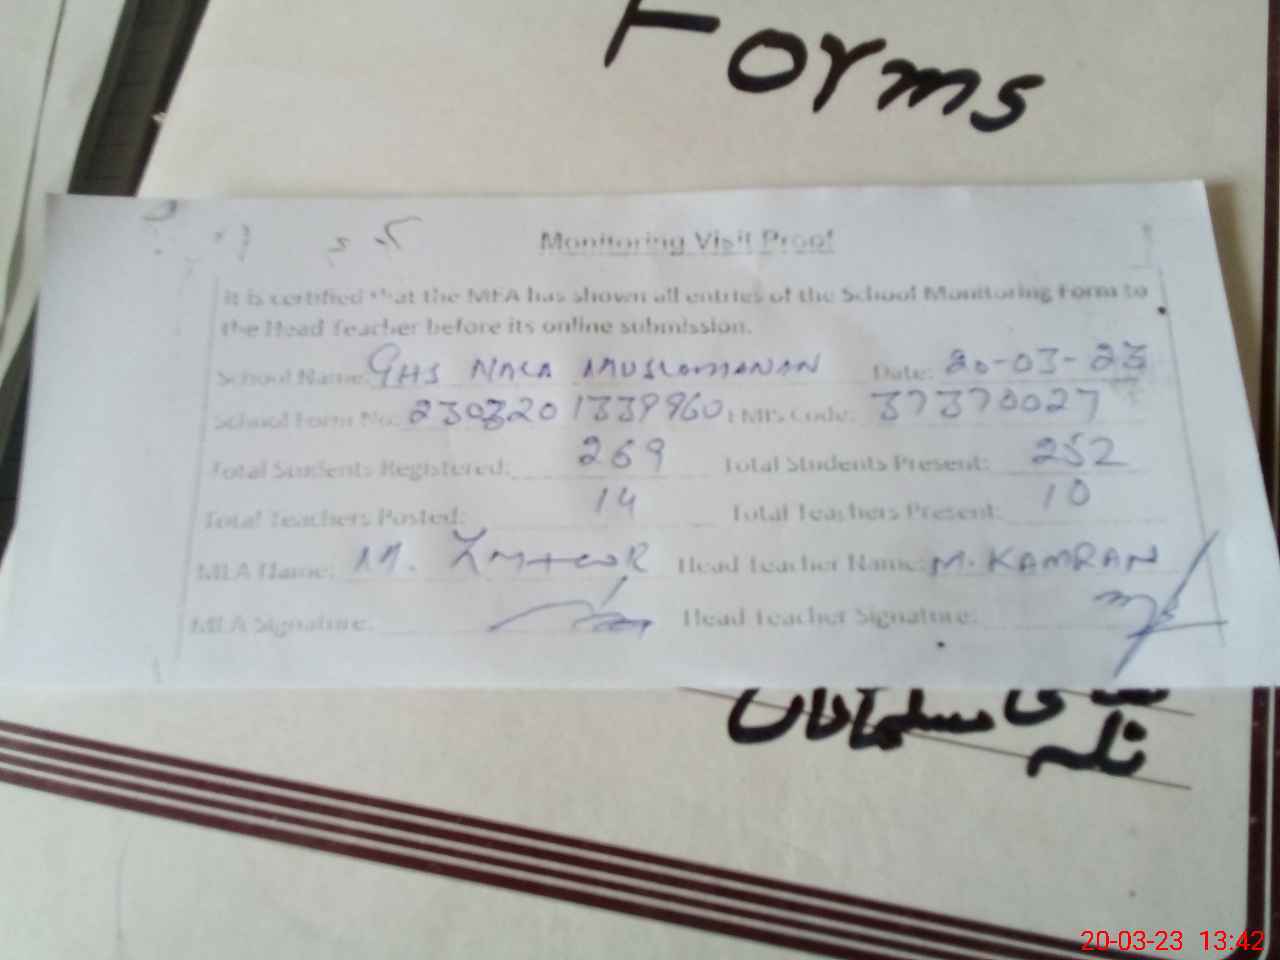 Forms
Monitoring Visit Proof
It is certified that the MEA has shown all entries of the School Monitoring Form to
the Head Teacher before its online submission.
School Name: GHS NALA MUSLOMANAN Date: 20-03-23
School Form No: 2303201339960 EMIS Code: 37370027
Total Students Registered: 269 Total Students Present: 252
Total Teachers Posted: 14 Total Teachers Present: 10
MEA Name: M. Head Teacher Name: M. KAMRAN
MEA Signature: Head Teacher Signature:
نلہ مسلماناں
20-03-23 13:42